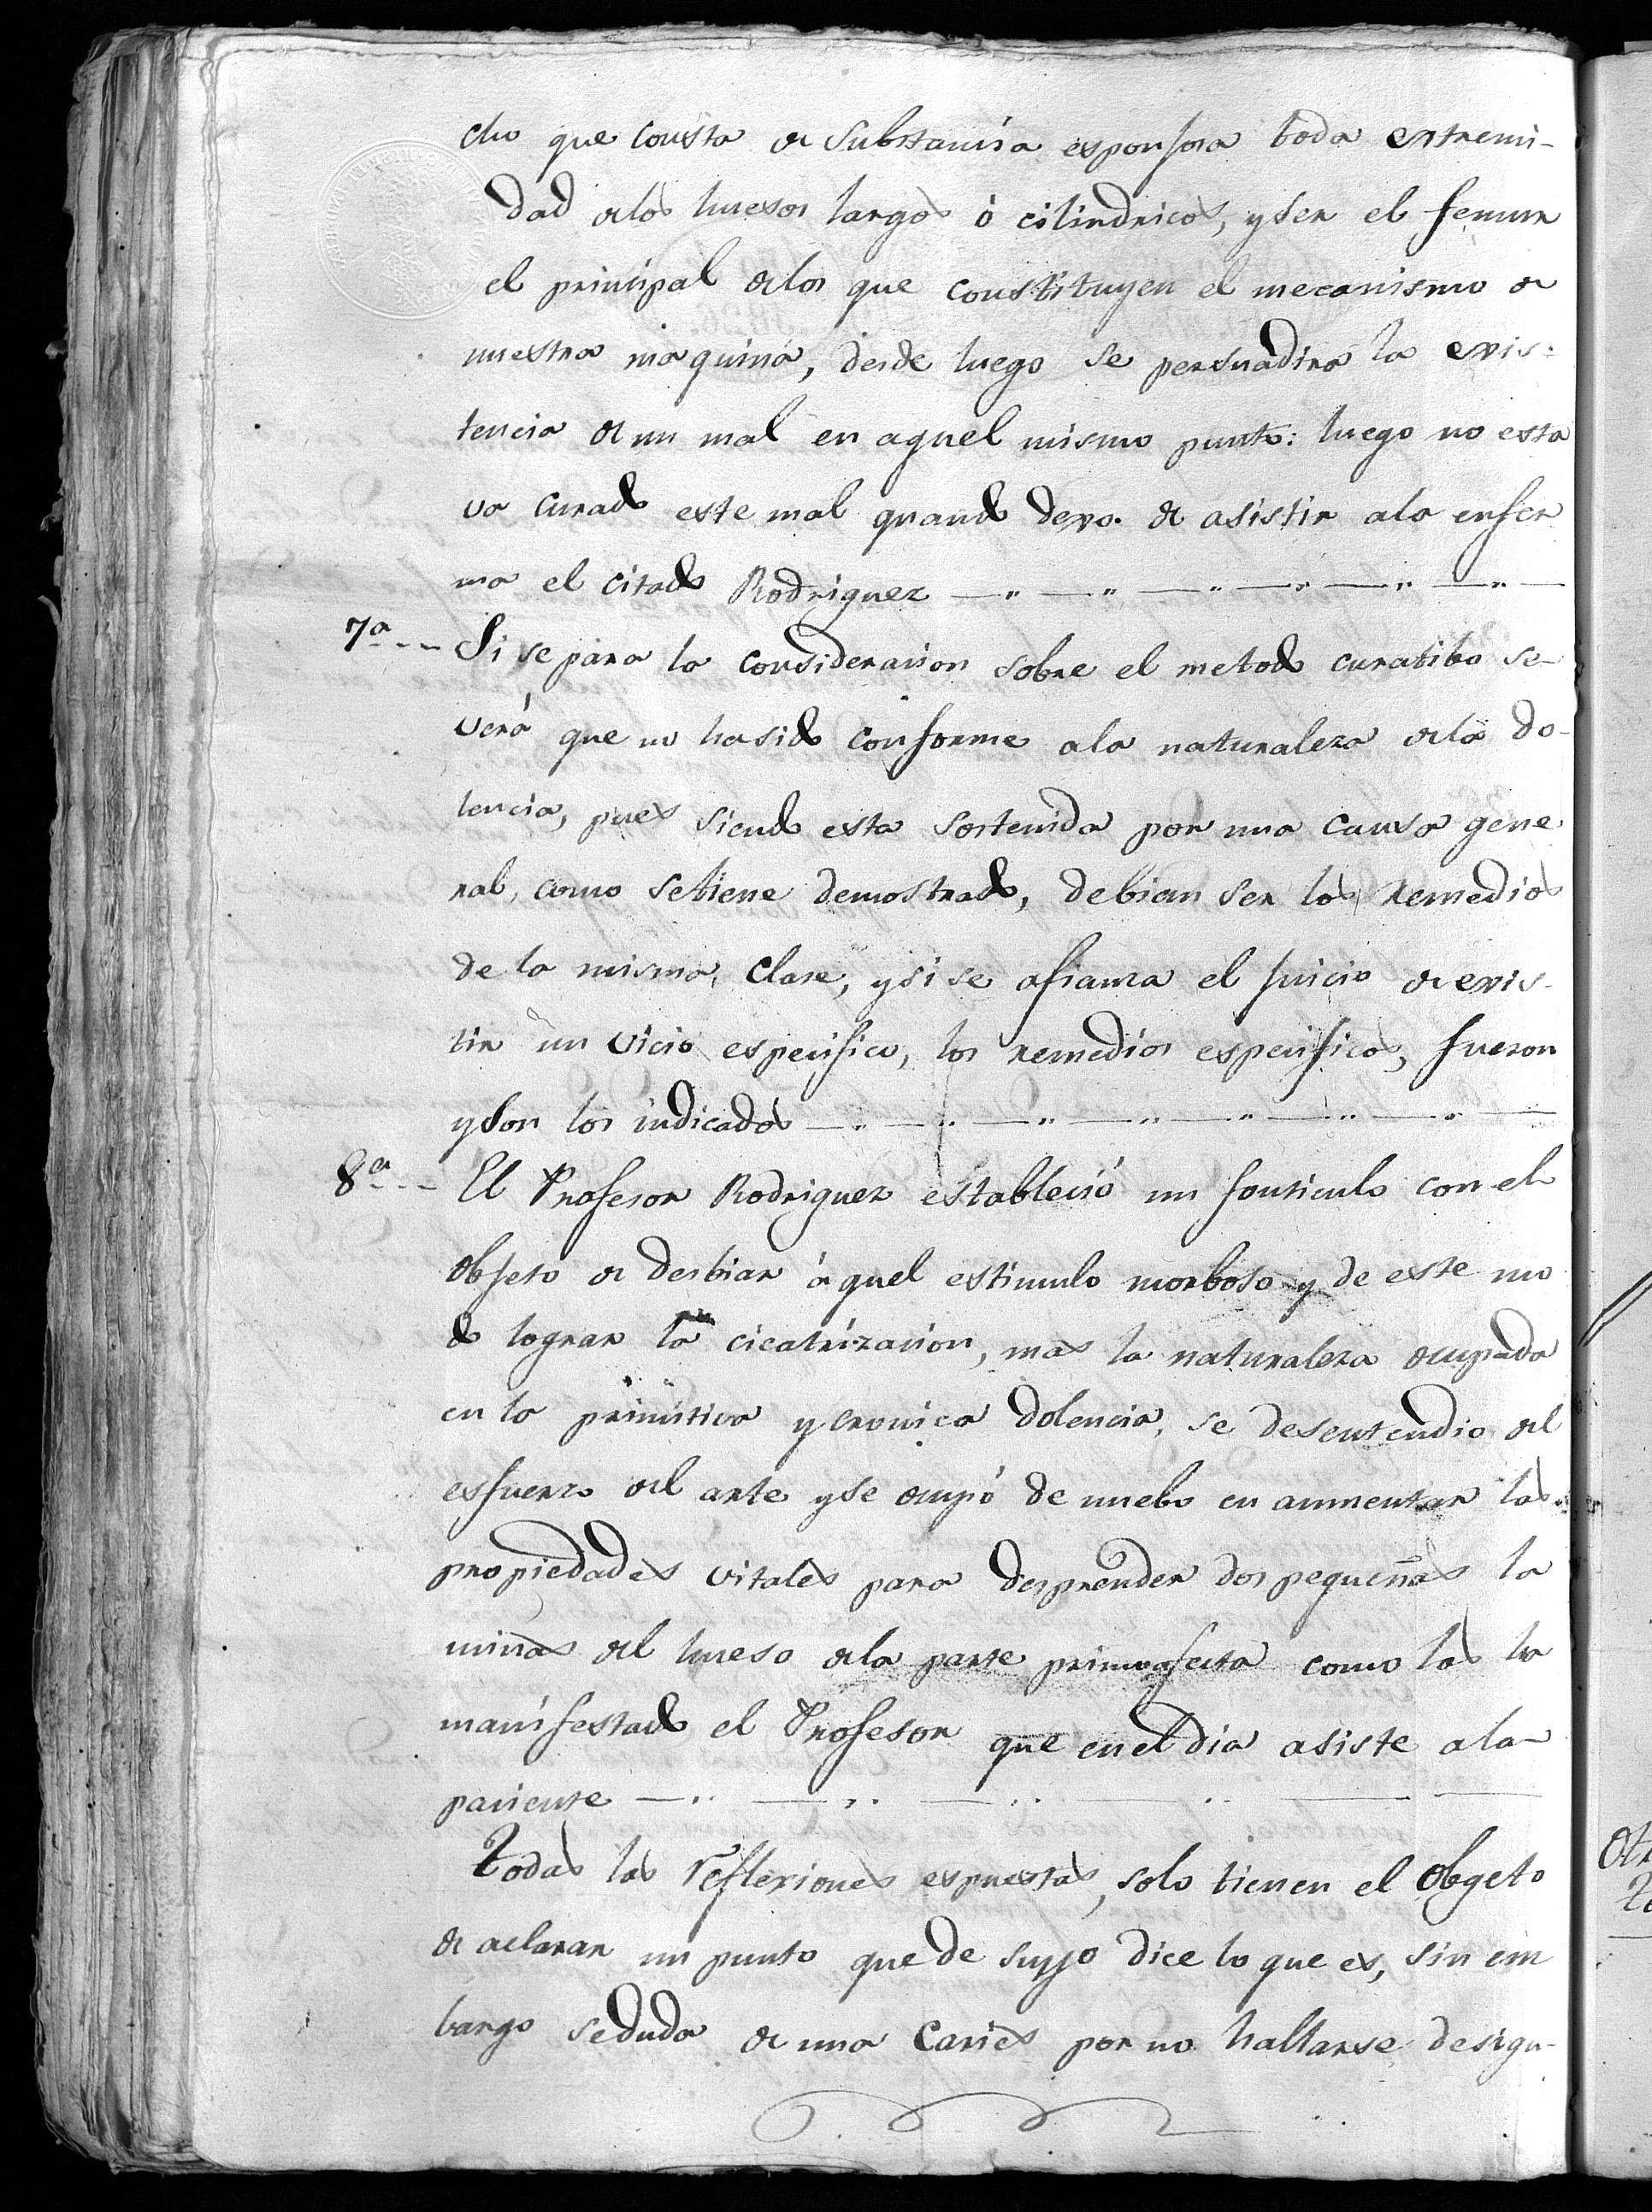 cho que consta de substancia esponjosa toda extremi-
dad delos huesos largos ó cilindricos, y ser el femur
el principal delos que constituyen el mecanismo de
nuestra maquina, desde luego se persuadira la exis-
tencia de un mal en aquel mismo punto: luego no esta
va curado este mal quando dexo de asistir ala enfer
ma el citado Rodriguez
7ª Si se para la consideracion sobre el metodo curatibo se
verá que no hasido conforme ala naturaleza dela do-
lencia, pues siendo esta sostenida por una causa gene
ral, como setiene demostrado, debian ser los remedios
de la misma clase, y si se afianza el juicio de exis-
tir un vicio especifico, los remedios especificos, fueron
y son los indicados
8ª El Profesor Rodriguez estableció un fonticulo con el
objeto de desbiar áquel estimulo morboso y de este mo
do lograr la cicatrizacion, mas la naturaleza ocupada
en la primitiva y cronica dolencia, se desentendio del
esfuerzo del arte y se ocupó de nuebo en aumentar las
propiedades vitales para desprender dos pequeñas la
minas del hueso dela parte primoafecta como las ha
manifestado el Profesor que en el dia asiste ala
paciente
Todas las reflexiones espuestas, solo tienen el Obgeto
de aclarar un punto que de suyo dice lo que es, sin em
bargo seduda de una Caries por no hallarse design-